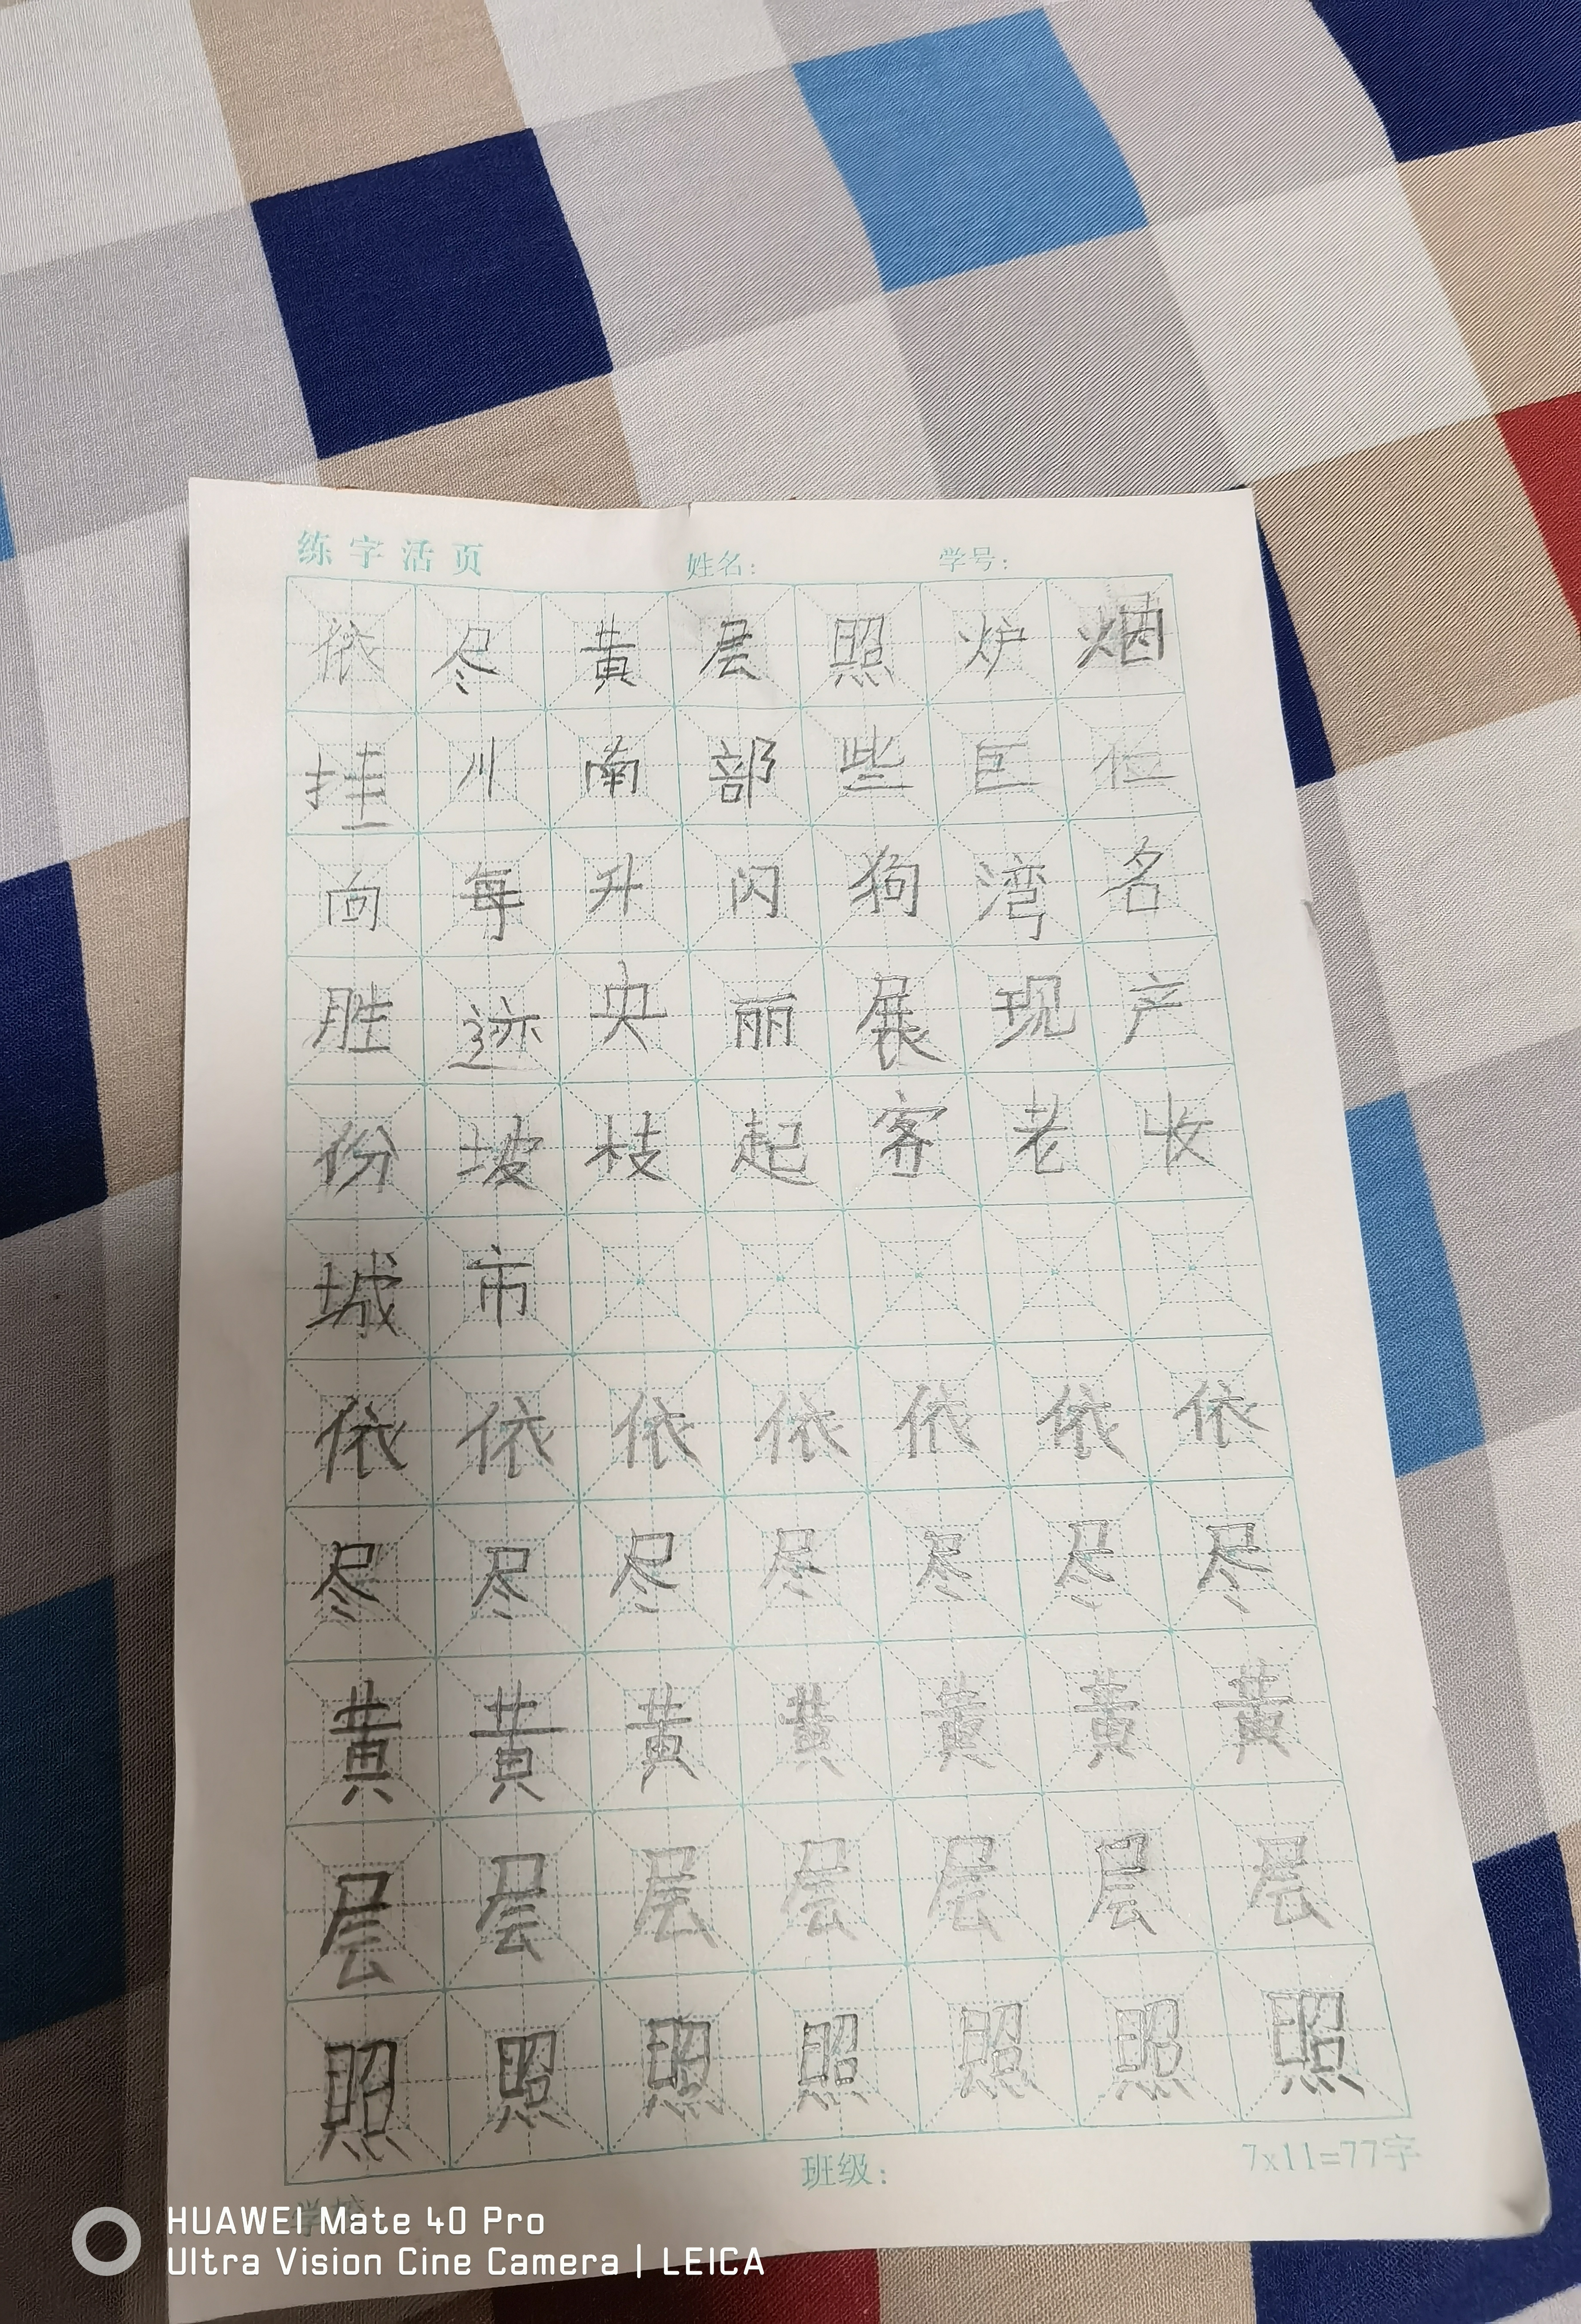 练字活页 姓名： 学号：
依 尽 黄 层 照 炉 烟
挂 川 南 部 些 巨 位
向 每 升 闪 狗 湾 名
胜 迹 央 丽 展 现 产
份 坡 枝 起 客 老 收
城 市
依 依 依 依 依 依 依
尽 尽 尽 尽 尽 尽 尽
黄 黄 黄 黄 黄 黄 黄
层 层 层 层 层 层 层
照 照 照 照 照 照 照
班级： 7x11=77字
HUAWEI Mate 40 Pro
Ultra Vision Cine Camera | LEICA